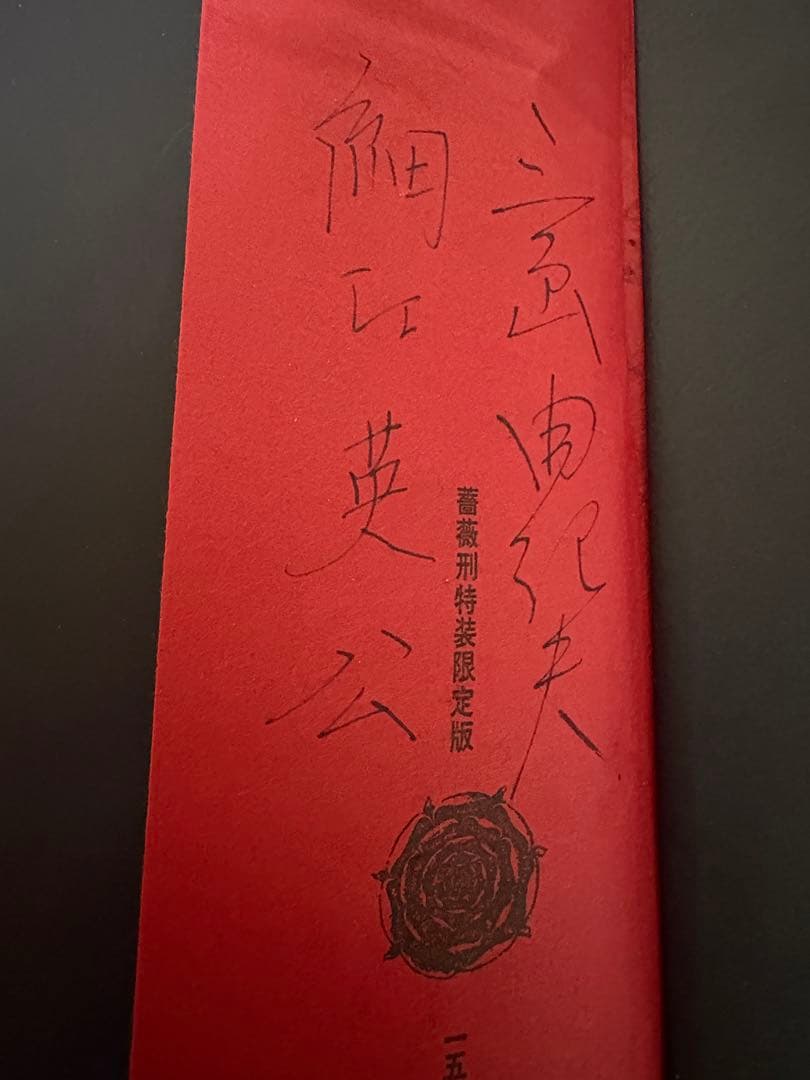 三島由紀夫
薔薇刑特装限定版
一五
細江英公